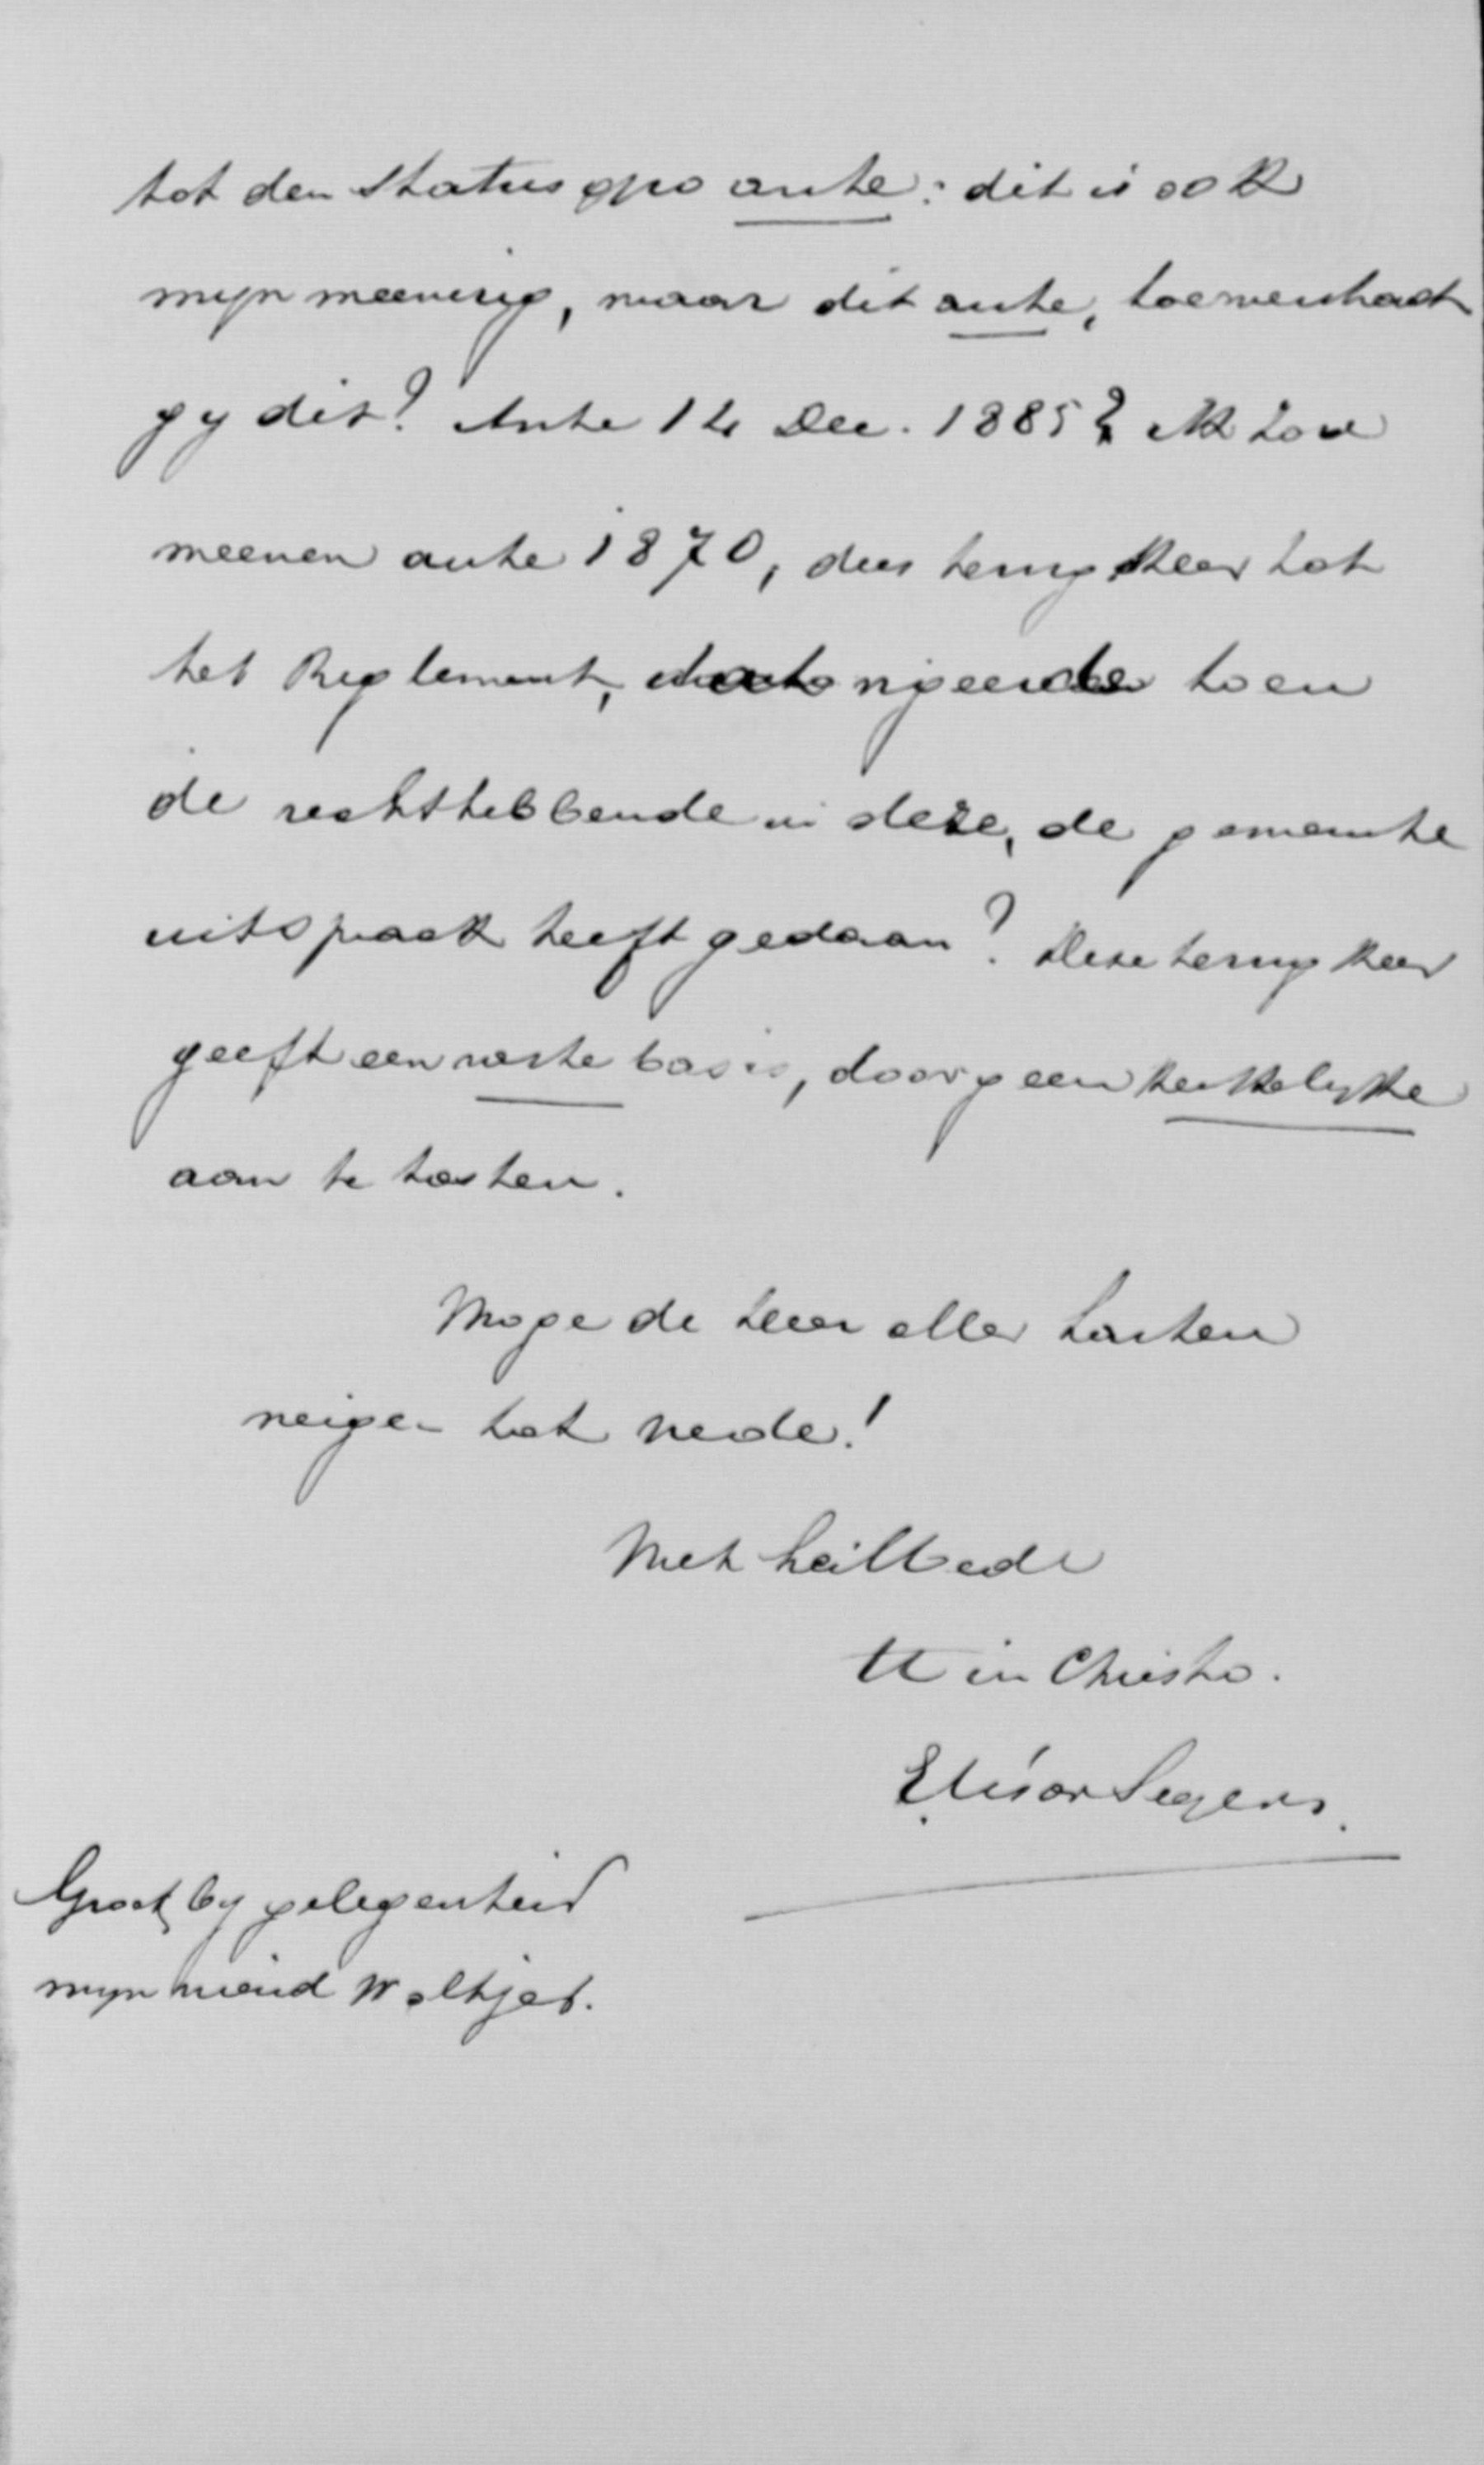 tot den status quo ante: dit is ook
mijn meening, maar dit ante, hoe verstaat
gy dit? Ante 14 Dec. 1885? Ik zou
meenen ante 1870, dus terugkeer tot
het Reglement, vigeerde toen
de rechthebbende in deze, de gemeente
uitspraak heeft gedaan? Deze terugkeer
geeft een vaste basis, door geen kerkelyke
aan te tasten.
Moge de Heer aller harten
neigen tot vrede!
Met heilbede
tt in Christo.
Groet by gelegenheid
mijn vriend Woltjer.